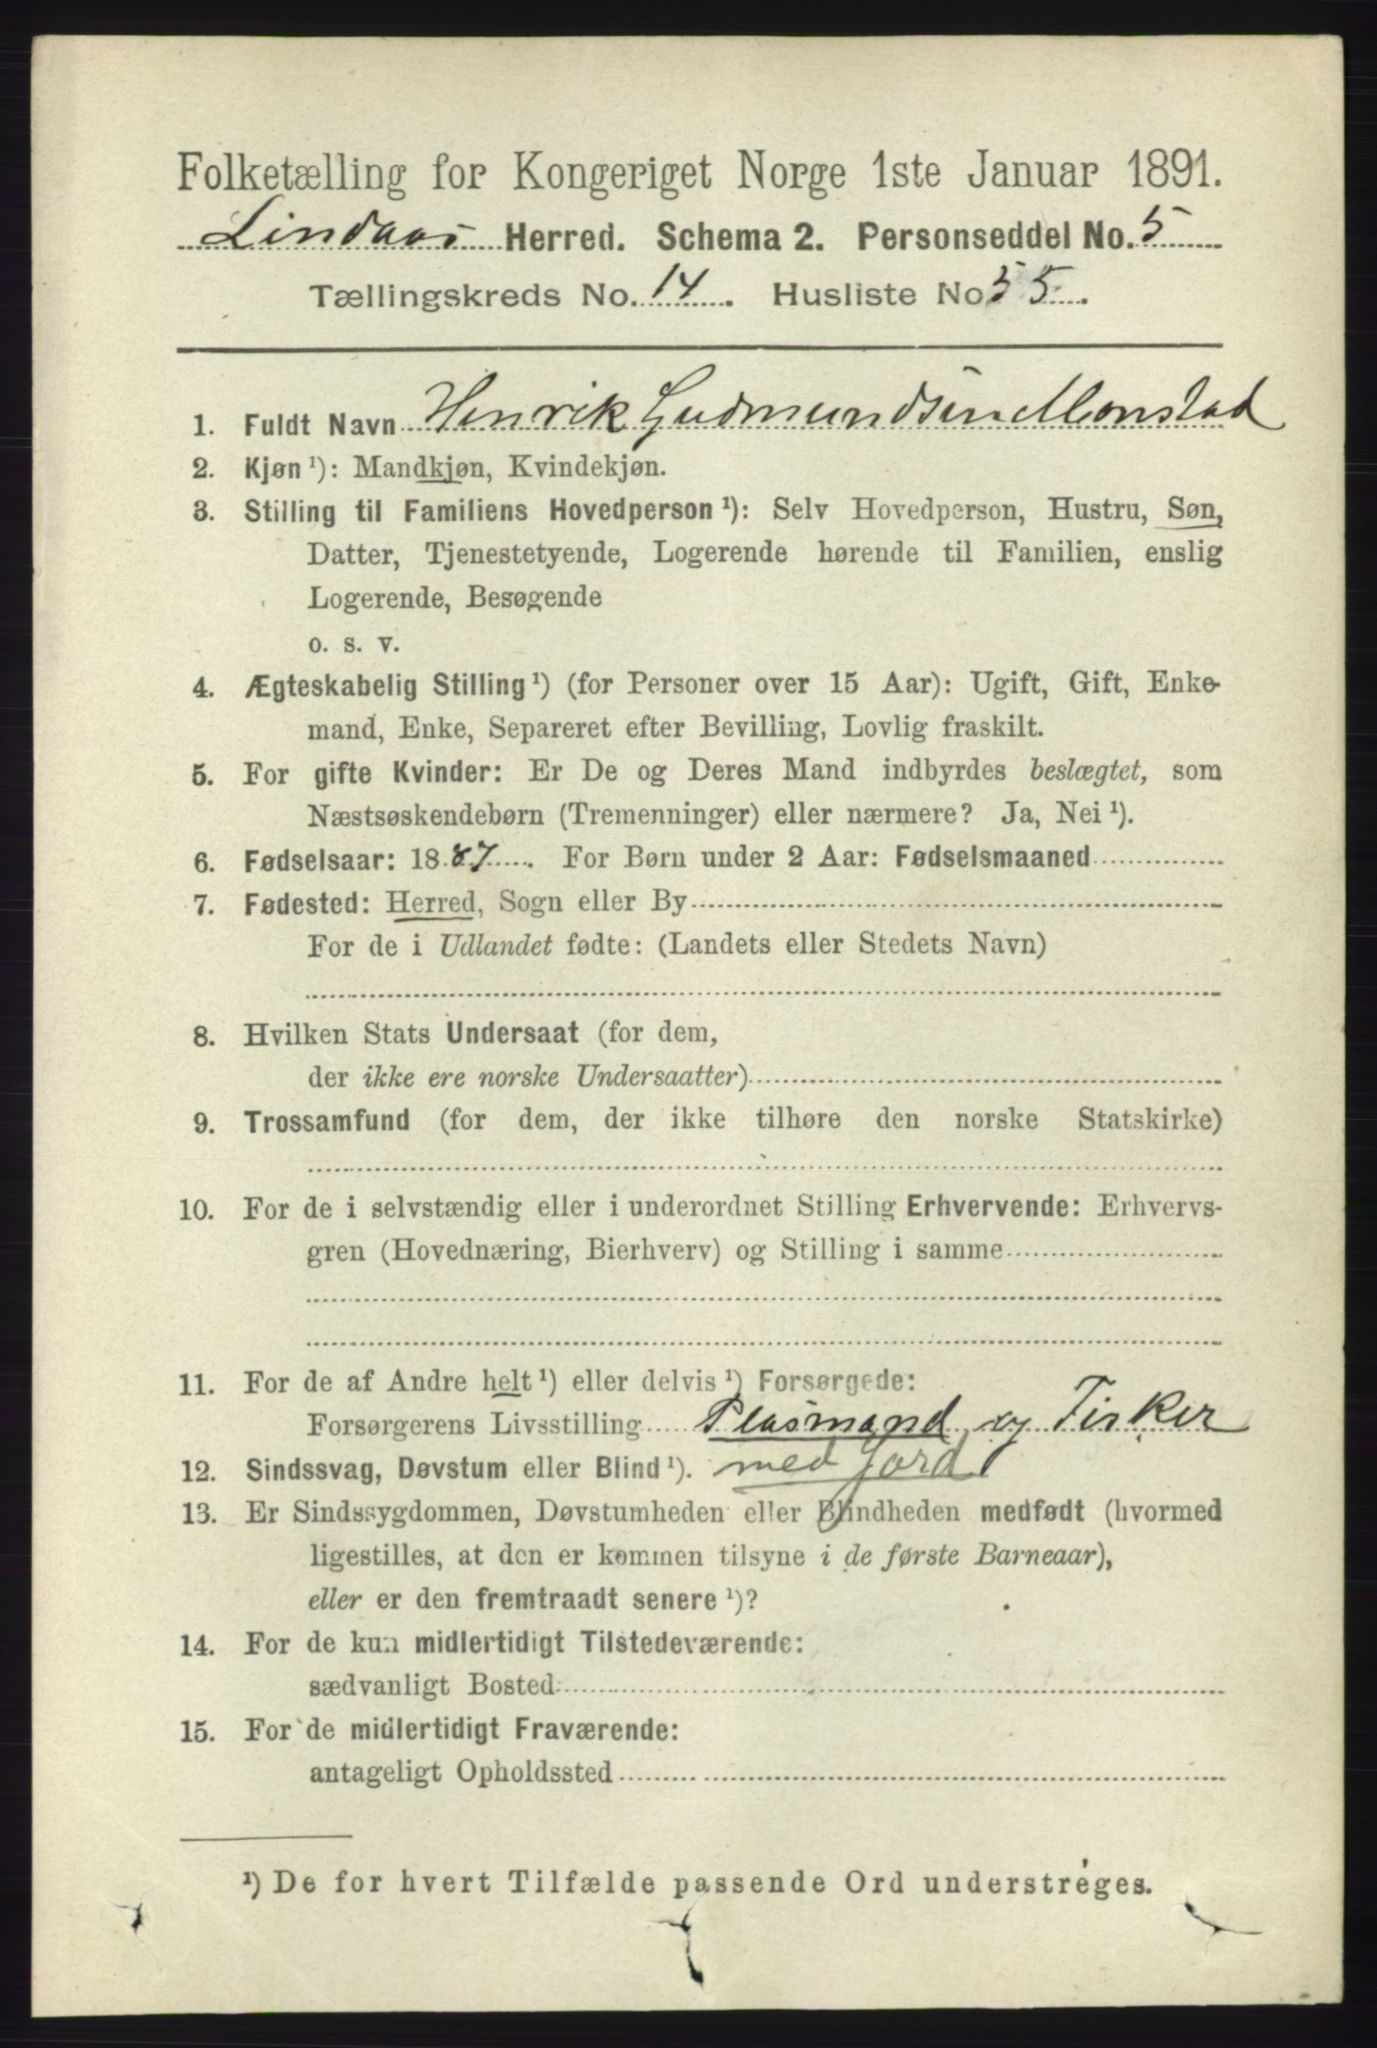 Folketælling for Kongeriget Norge 1ste Januar 1891.
Lindaas Herred. Schema 2. Personseddel No. 5
Tællingskreds No. 14. Husliste No 55
1. Fuldt Navn Henrik Gudmundsen Monstad
2. Kjøn ¹): Mandkjøn, Kvindekjøn.
3. Stilling til Familiens Hovedperson ¹): Selv Hovedperson, Hustru, Søn,
Datter, Tjenestetyende, Logerende hørende til Familien, enslig
Logerende, Besøgende
o. s. v.
4. Ægteskabelig Stilling ¹) (for Personer over 15 Aar): Ugift, Gift, Enke-
mand, Enke, Separeret efter Bevilling, Lovlig fraskilt.
5. For gifte Kvinder: Er De og Deres Mand indbyrdes beslægtet, som
Næstsøskendebørn (Tremenninger) eller nærmere? Ja, Nei ¹).
6. Fødselsaar: 1887. For Børn under 2 Aar: Fødselsmaaned
7. Fødested: Herred, Sogn eller By
For de i Udlandet fødte: (Landets eller Stedets Navn)
8. Hvilken Stats Undersaat (for dem,
der ikke ere norske Undersaatter)
9. Trossamfund (for dem, der ikke tilhøre den norske Statskirke)
10. For de i selvstændig eller i underordnet Stilling Erhvervende: Erhvervs-
gren (Hovednæring, Bierhverv) og Stilling i samme
11. For de af Andre helt ¹) eller delvis ¹) Forsørgede:
Forsørgerens Livsstilling Plasmand og Fisker
12. Sindssvag, Døvstum eller Blind ¹). med Jord
13. Er Sindssygdommen, Døvstumheden eller Blindheden medfødt (hvormed
ligestilles, at den er kommen tilsyne i de første Barneaar),
eller er den fremtraadt senere ¹)?
14. For de kun midlertidigt Tilstedeværende:
sædvanligt Bosted
15. For de midlertidigt Fraværende:
antageligt Opholdssted
¹) De for hvert Tilfælde passende Ord understreges.